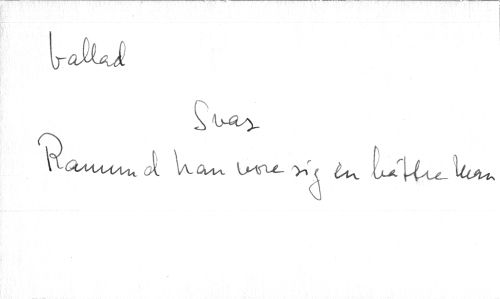 ballad
Svar
Ramund han vore sig en bättre man